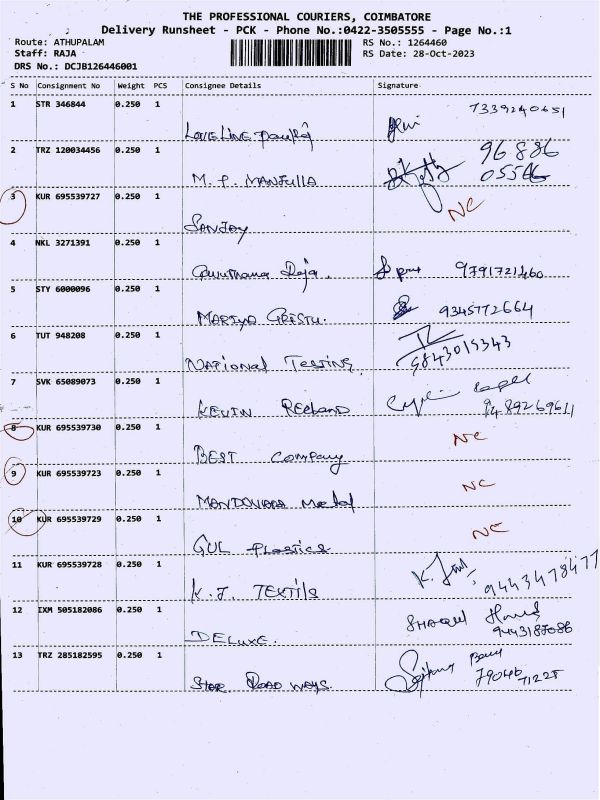 THE PROFESSIONAL COURIERS, COIMBATORE
Delivery Runsheet - PCK - Phone No.:0422-3505555 - Page No.:1
Route: ATHUPALAM RS No.: 1264460
Staff: RAJA RS Date: 28-Oct-2023
DRS No.: DCJB126446001
S No Consignment No Weight PCS Consignee Details Signature
1 STR 346844 0.250 1
7339240651
LOVELINE
2 TRZ 120034456 0.250 1
96886
M. P. MANJULLA 05566
3 KUR 695539727 0.250 1
NC
SANJAY
4 NKL 3271391 0.250 1
Raja 9791721460
5 STY 6000096 0.250 1
9345772664
6 TUT 948208 0.250 1
NATIONAL TESTING 9843015343
7 SVK 65089073 0.250 1
KEVIN 9489269611
8 KUR 695539730 0.250 1
NC
BEST Company
9 KUR 695539723 0.250 1
NC
Metal
10 KUR 695539729 0.250 1
NC
GUL Plastics
11 KUR 695539728 0.250 1
9443478477
K. J. TEXTILS
12 IXM 505182086 0.250 1
DELUXE. 9443187086
13 TRZ 285182595 0.250 1
79046
STAR ROAD WAYS. 71225